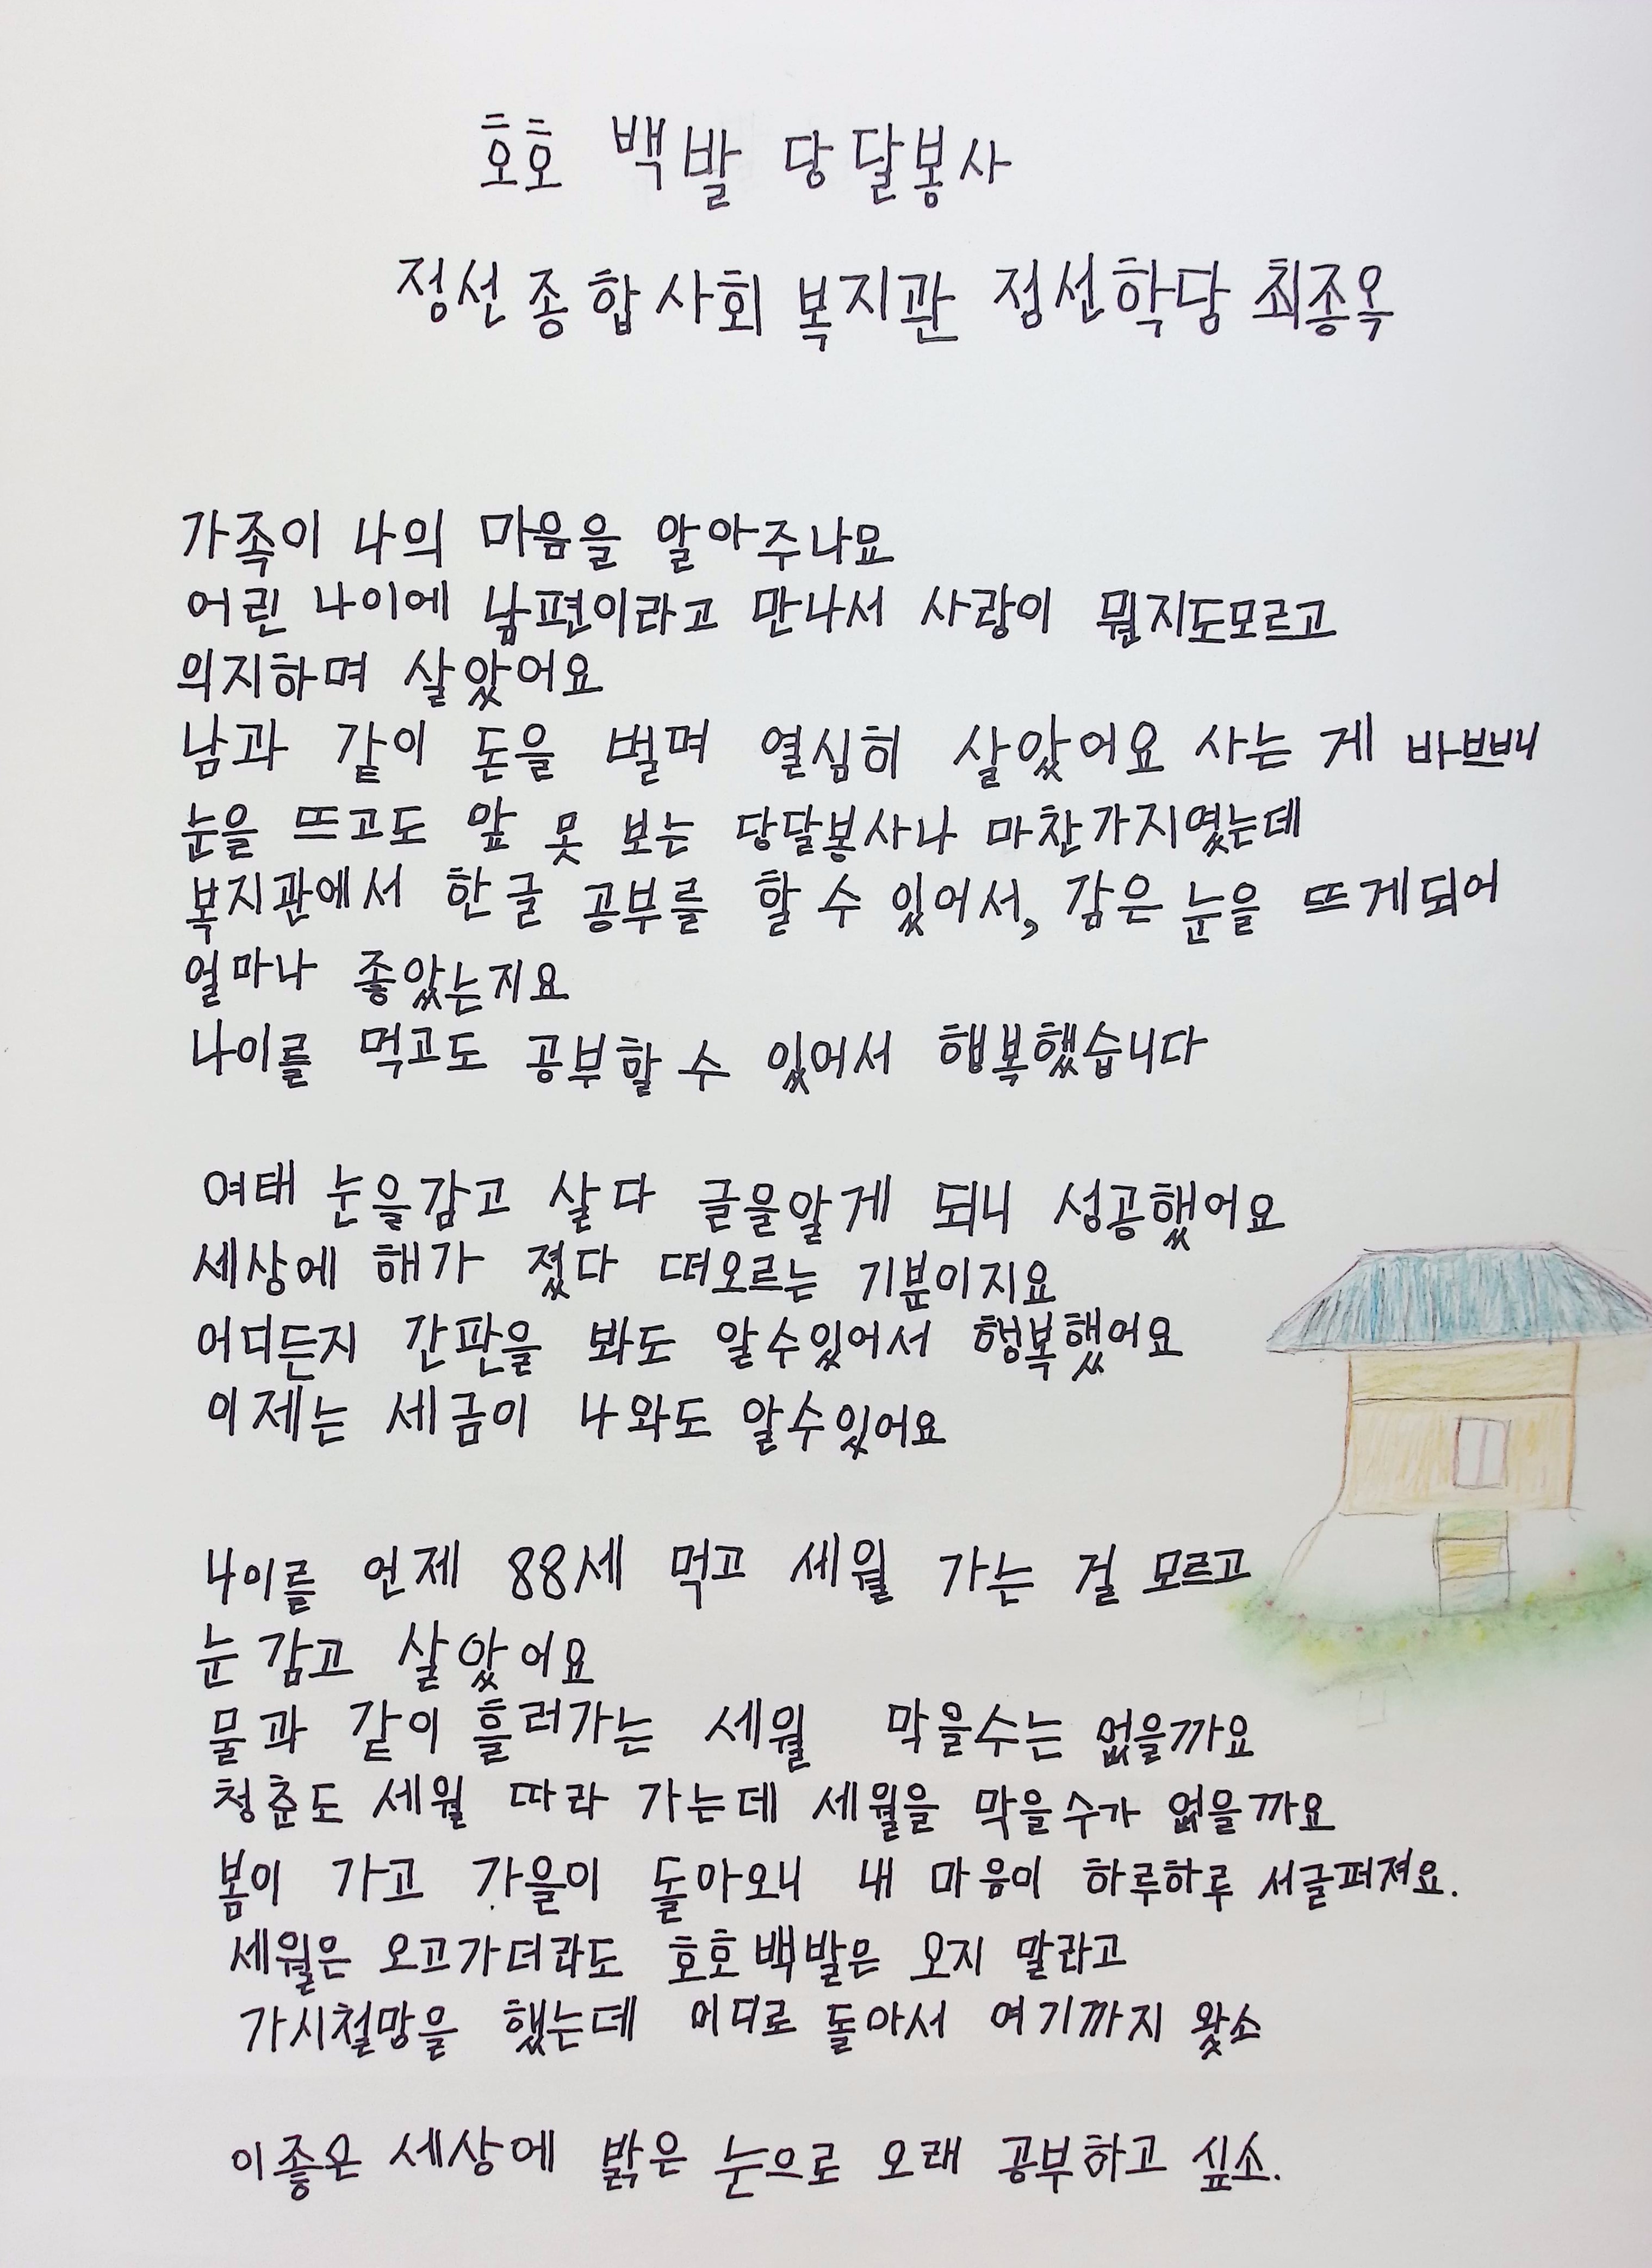 호호 백발 당달봉사
정선종합사회 복지관 정선학당 최종옥
가족이 나의 마음을 알아주나요
어린 나이에 남편이라고 만나서 사랑이 뭔지도모르고
의지하며 살았어요
남과 같이 돈을 벌며 열심히 살았어요 사는 게 바쁘니
눈을 뜨고도 앞 못 보는 당달봉사나 마찬가지였는데
복지관에서 한글 공부를 할 수 있어서, 감은 눈을 뜨게되어
얼마나 좋았는지요
나이를 먹고도 공부할 수 있어서 행복했습니다
여태 눈을감고 살다 글을알게 되니 성공했어요
세상에 해가 졌다 떠오르는 기분이지요
어디든지 간판을 봐도 알수있어서 행복했어요
이제는 세금이 나와도 알수있어요
나이를 언제 88세 먹고 세월 가는 걸 모르고
눈 감고 살았어요
물과 같이 흘러가는 세월 막을수는 없을까요
청춘도 세월 따라 가는데 세월을 막을수가 없을까요
봄이 가고 가을이 돌아오니 내 마음이 하루하루 서글퍼져요.
세월은 오고가더라도 호호백발은 오지 말라고
가시철망을 했는데 어디로 돌아서 여기까지 왔소
이좋은 세상에 밝은 눈으로 오래 공부하고 싶소.